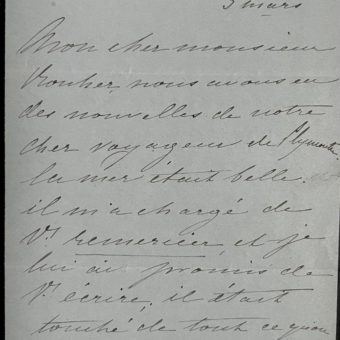 3 mars
Mon cher monsieur
Rouher, nous avons eu
des nouvelles de notre
cher voyageur de Plymouth.
la mer était belle.
il m'a chargé de
Vs remercier, et je
lui ai promis de
Vs écrire; il était
touché de tout ce qu'on